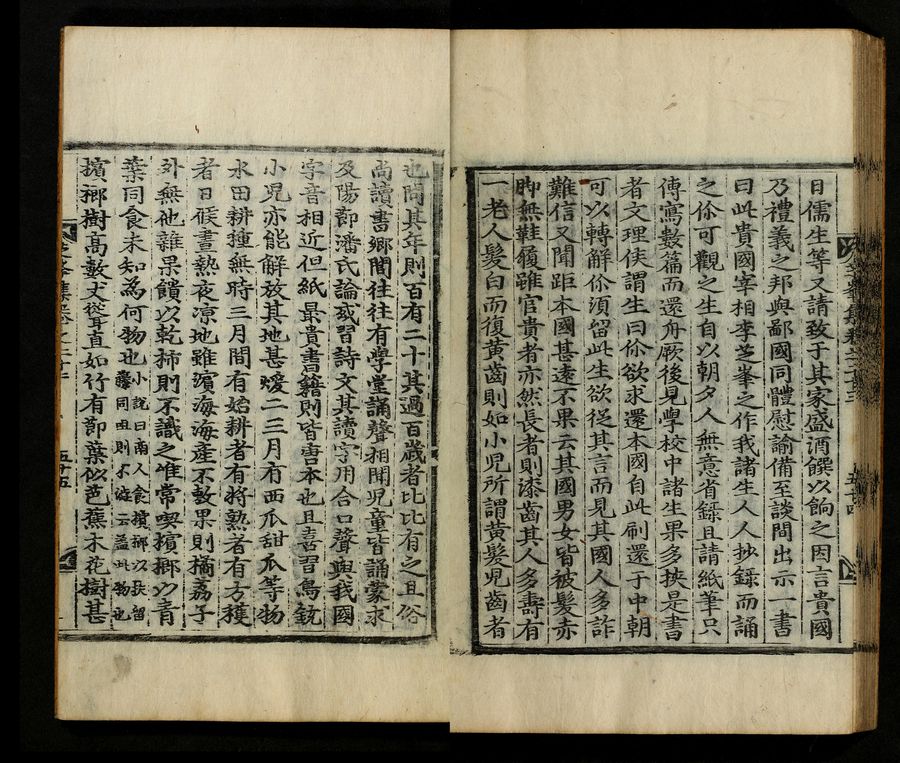 日儒生等又請致于其家盛酒饌以餉之因言貴國
乃禮義之邦與鄙國同體慰諭備至談間出示一書
曰此貴國宰相李芝峯之作我諸生人人抄錄而誦
之你可觀之生自以朝夕人無意省錄且請紙筆只
傳寫數篇而還舟厥後見學校中諸生果多挾是書
者文理侯謂生曰你欲求還本國自此刷還于中朝
可以轉解你須留此生欲從其言而見其國人多詐
難信又聞距本國甚遠不果云其國男女皆被髮赤
脚無鞋履雖官貴者亦然長者則漆齒其人多壽有
一老人髮白而復黃齒則如小兒所謂黃髮兒齒者
也問其年則百有二十其過百歲者比比有之且俗
尚讀書鄉閭往往有學堂誦聲相聞兒童皆誦蒙求
及陽節潘氏論或習詩文其讀字用合口聲與我國
字音相近但紙最貴書籍則皆唐本也且喜習鳥銃
小兒亦能解放其地甚暖二三月有西瓜甜瓜等物
水田耕種無時三月間有始耕者有將熟者有方穫
者日候晝熱夜凉地雖濱海海産不敷果則橘荔子
外無他雜果饋以乾柿則不識之唯常喫檳榔以青
葉同食未知爲何物也小說曰南人食檳榔以扶留藤同咀則不澁云蓋此物也
檳榔樹高數丈聳直如竹有節葉似芭蕉木花樹甚
五十四
五十五